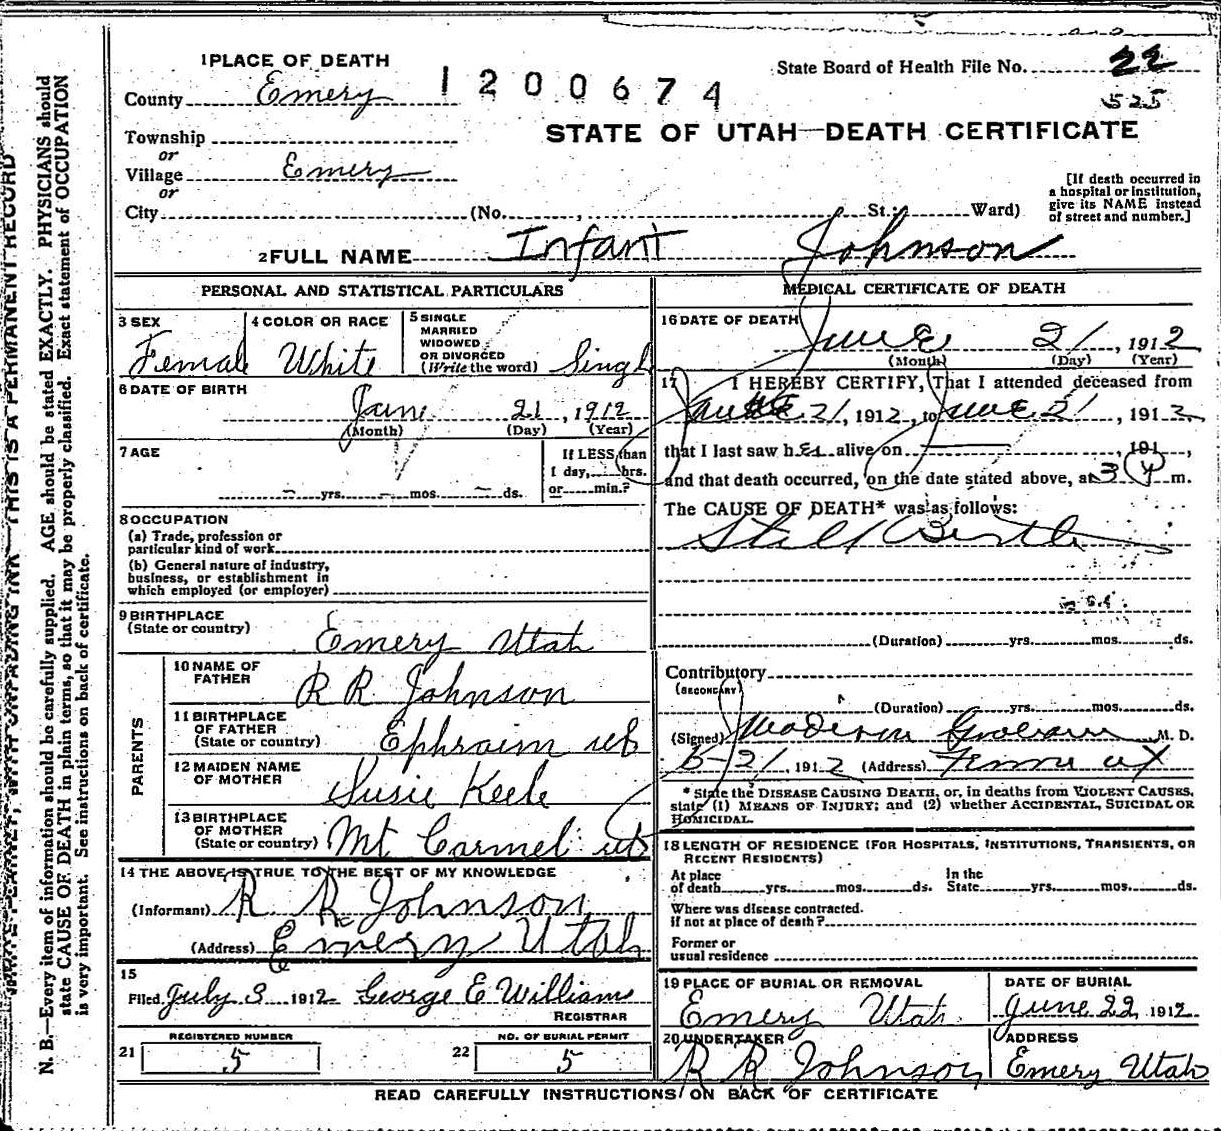 WRITE PLAINLY, WITH UNFADING INK—THIS IS A PERMANENT RECORD
N. B.—Every item of information should be carefully supplied. AGE should be stated EXACTLY. PHYSICIANS should
state CAUSE OF DEATH in plain terms, so that it may be properly classified. Exact statement of OCCUPATION
is very important. See instructions on back of certificate.
1 PLACE OF DEATH
County Emery
1200674
State Board of Health File No. 22
525
STATE OF UTAH—DEATH CERTIFICATE
Township
or
Village Emery
or
City (No. , St.; Ward)
[If death occurred in
a hospital or institution,
give its NAME instead
of street and number.]
2 FULL NAME Infant Johnson
PERSONAL AND STATISTICAL PARTICULARS
3 SEX
Female
4 COLOR OR RACE
White
5 SINGLE
MARRIED
WIDOWED
OR DIVORCED
(Write the word) Singl
6 DATE OF BIRTH
Jun 21, 1912
(Month) (Day) (Year)
7 AGE
— yrs. — mos. — ds.
If LESS than
1 day, hrs.
or min.?
8 OCCUPATION
(a) Trade, profession or
particular kind of work
(b) General nature of industry,
business, or establishment in
which employed (or employer)
9 BIRTHPLACE
(State or country)
Emery Utah
PARENTS
10 NAME OF
FATHER
R R Johnson
11 BIRTHPLACE
OF FATHER
(State or country) Ephraim ut
12 MAIDEN NAME
OF MOTHER
Susie Keele
13 BIRTHPLACE
OF MOTHER
(State or country) Mt Carmel ut
14 THE ABOVE IS TRUE TO THE BEST OF MY KNOWLEDGE
(Informant) R R Johnson
(Address) Emery Utah
15
Filed July 3 1912 George E Williams
REGISTRAR
REGISTERED NUMBER
21 5
NO. OF BURIAL PERMIT
22 5
MEDICAL CERTIFICATE OF DEATH
16 DATE OF DEATH
June 21, 1912
(Month) (Day) (Year)
17 I HEREBY CERTIFY, That I attended deceased from
June 21, 1912, to June 21, 1912,
that I last saw her alive on , 191 ,
and that death occurred, on the date stated above, at 3 m.
The CAUSE OF DEATH* was as follows:
Still Birth
(Duration) yrs. mos. ds.
Contributory
(SECONDARY)
(Duration) yrs. mos. ds.
(Signed) M. D.
6-21 1912 (Address) ut
* State the DISEASE CAUSING DEATH, or, in deaths from VIOLENT CAUSES,
state (1) MEANS OF INJURY; and (2) whether ACCIDENTAL, SUICIDAL OR
HOMICIDAL.
18 LENGTH OF RESIDENCE (FOR HOSPITALS, INSTITUTIONS, TRANSIENTS, OR
RECENT RESIDENTS)
At place
of death yrs. mos. ds.
In the
State yrs. mos. ds.
Where was disease contracted.
if not at place of death?
Former or
usual residence
19 PLACE OF BURIAL OR REMOVAL
Emery Utah
DATE OF BURIAL
June 22 1912
20 UNDERTAKER
R R Johnson
ADDRESS
Emery Utah
READ CAREFULLY INSTRUCTIONS ON BACK OF CERTIFICATE